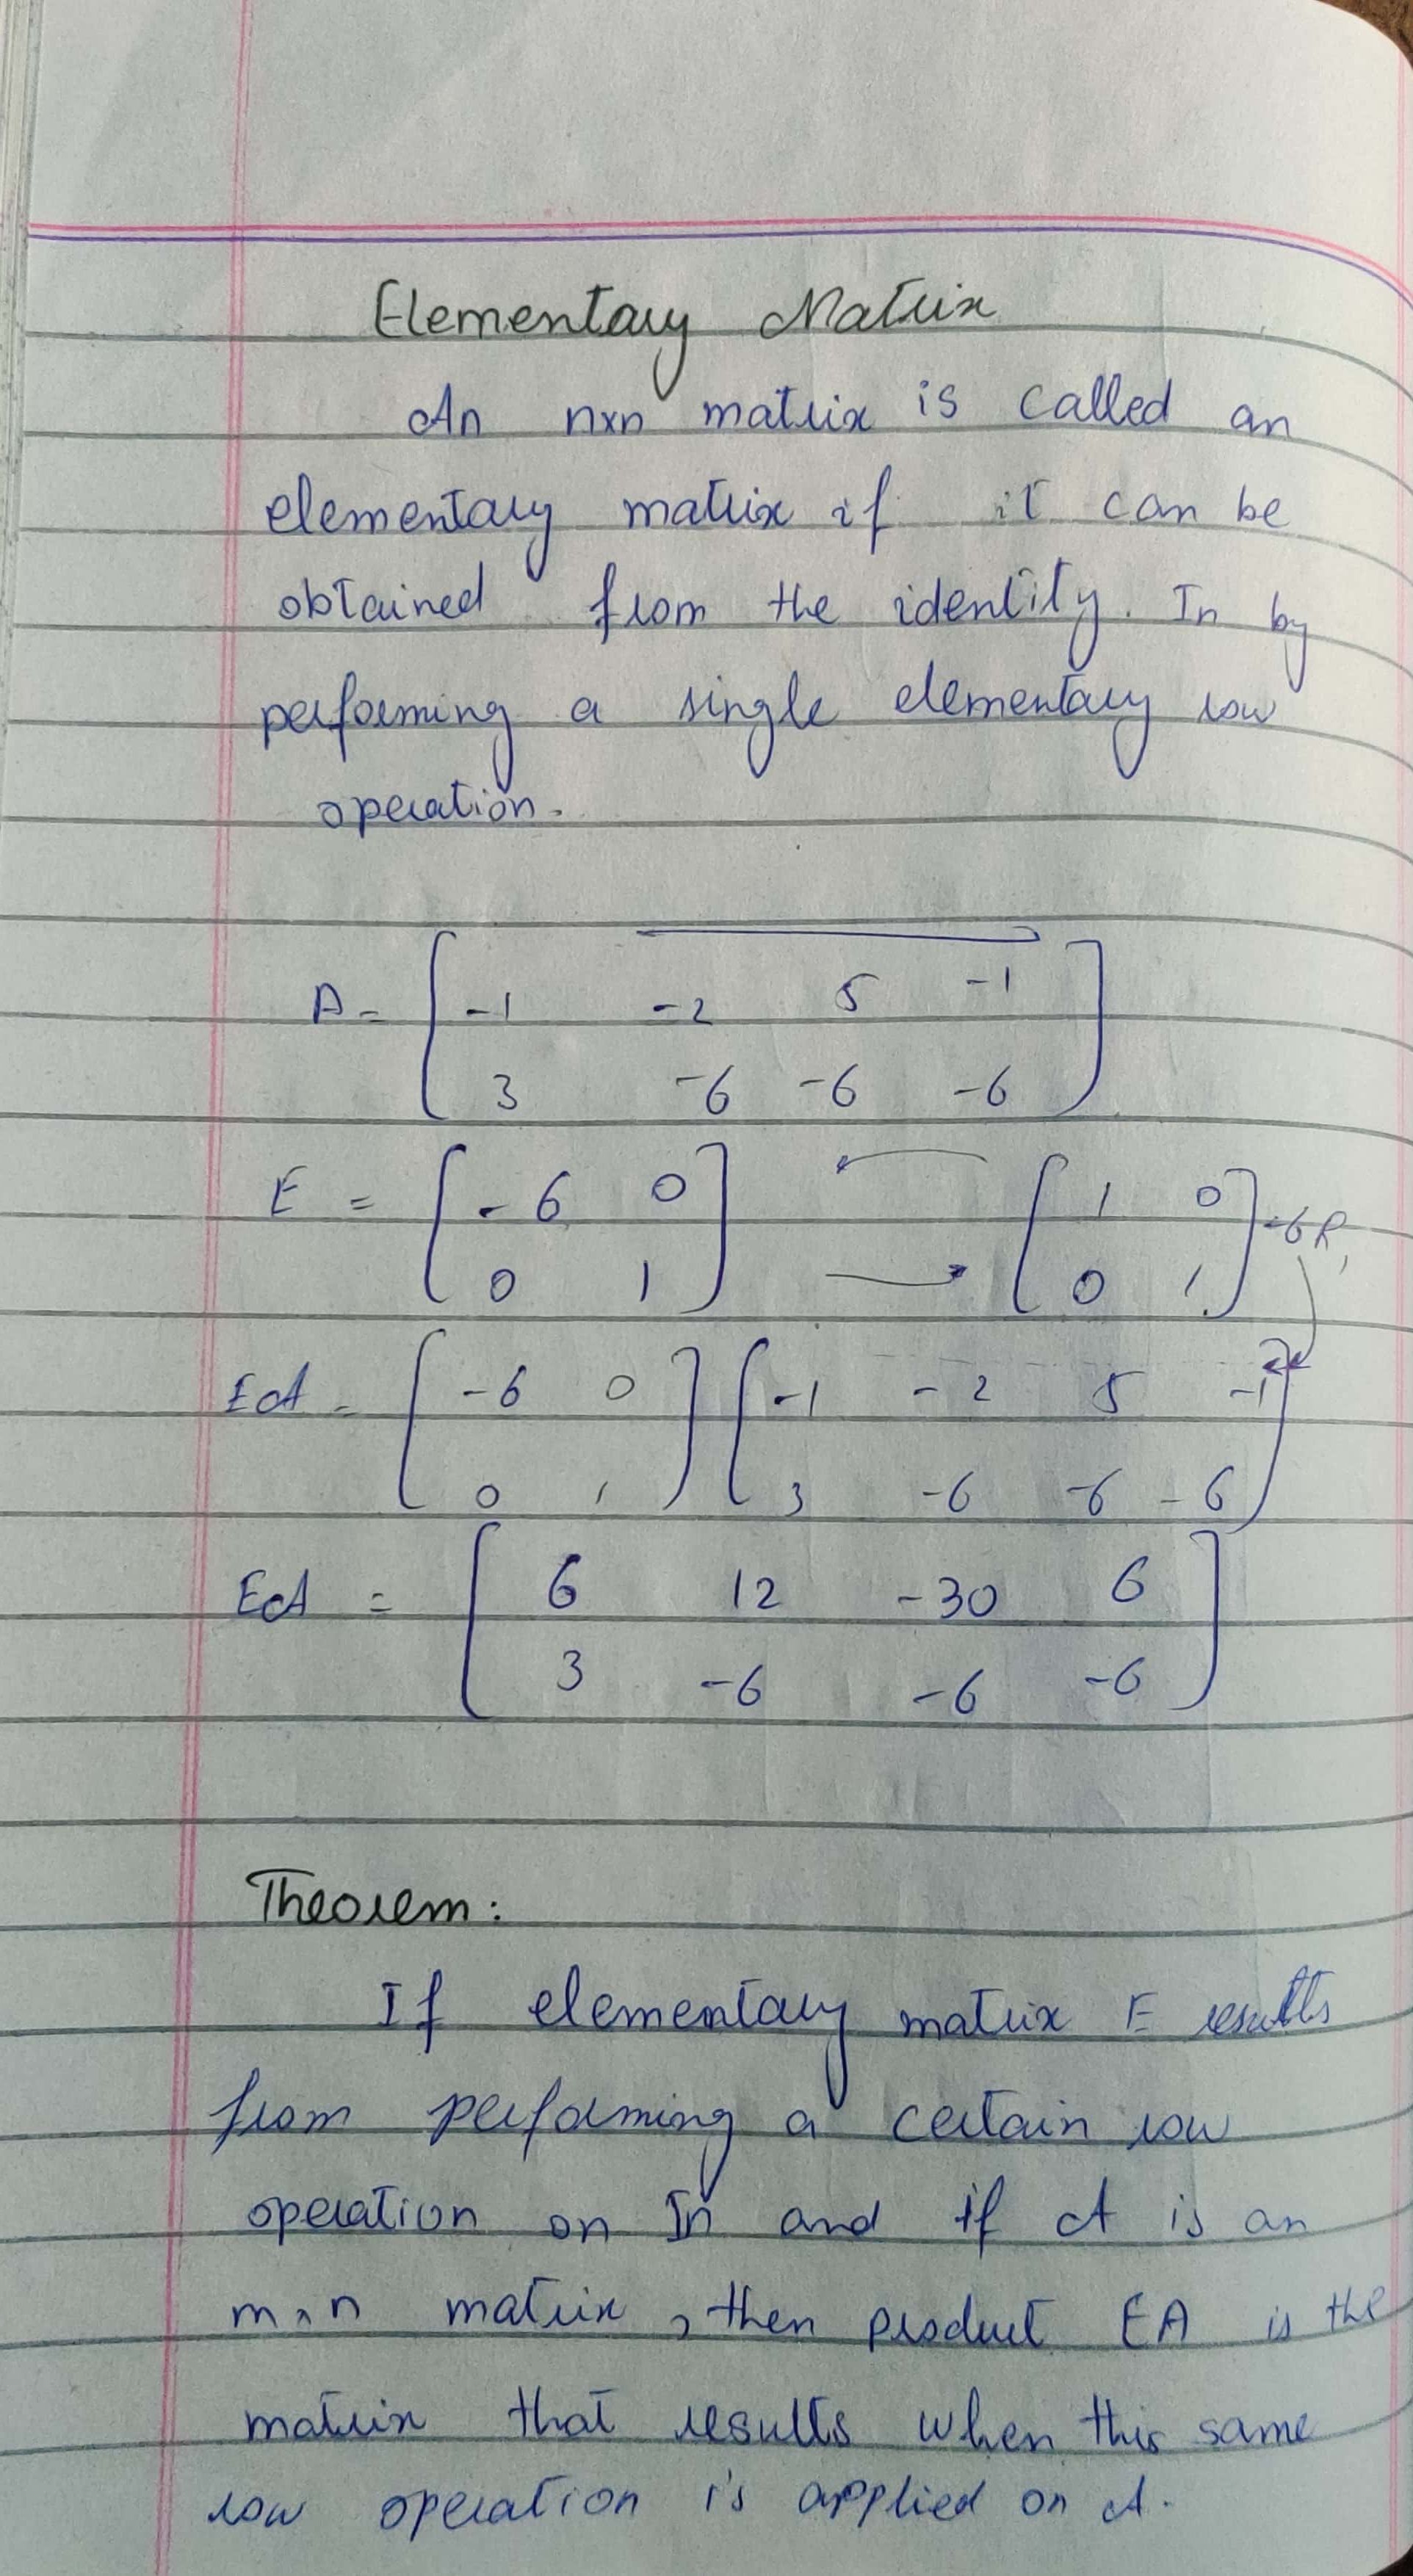 Elementary Matrix
An nxn matrix is called an
elementary matrix if it can be
obtained from the identity. In by
performing a single elementary row
operation.
A = [ -1 -2 5 -1
3 -6 -6 -6 ]
E = [ -6 0
0 1 ] [ 1 0
0 1 ] -6R1
EA = [ -6 0
0 1 ] [ -1 -2 5 -1
3 -6 -6 -6 ]
EA = [ 6 12 -30 6
3 -6 -6 -6 ]
Theorem:
If elementary matrix E results
from performing a certain row
operation on In and if A is an
m×n matrix, then product EA is the
matrix that results when this same
row operation is applied on A.